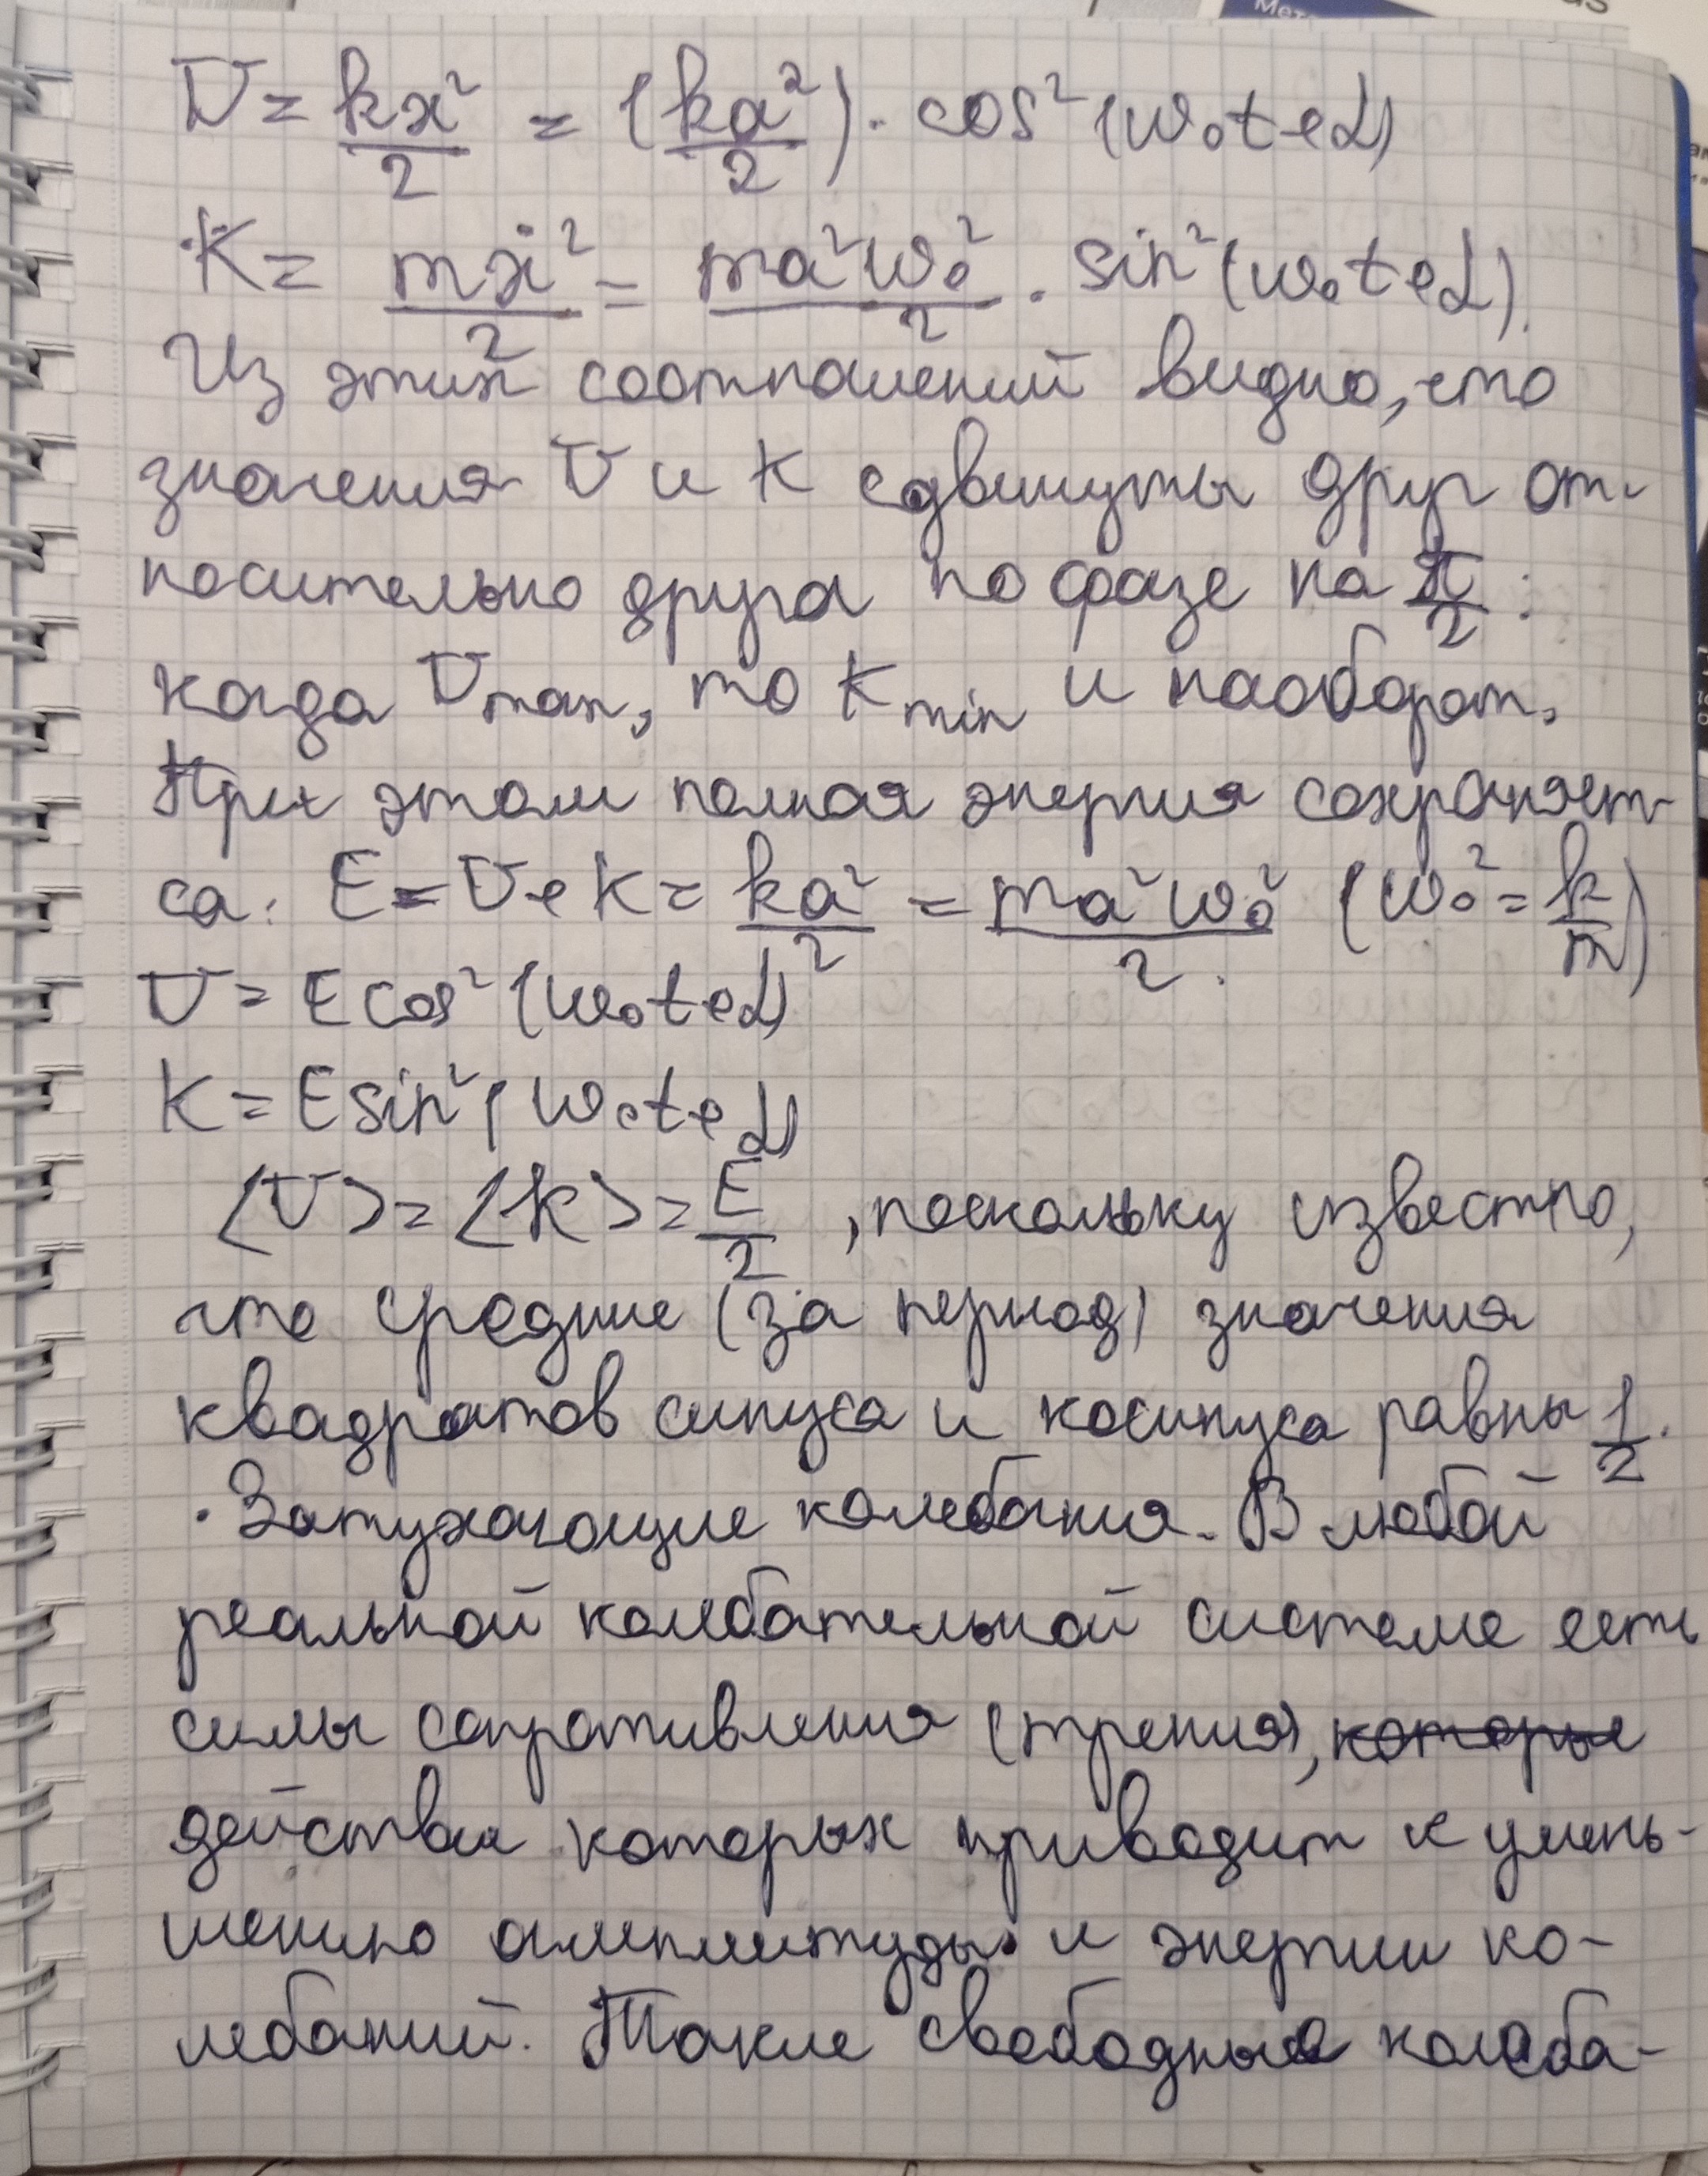 U = kx²/2 = (ka²/2) · cos²(ω₀t+α)
K = mẋ²/2 = ma²ω₀²/2 · sin²(ω₀t+α).
Из этих соотношений видно, что
значения U и K сдвинуты друг от-
носительно друга по фазе на π/2:
когда Umax, то Kmin и наоборот.
При этом полная энергия сохраняет-
ся: E = U+K = ka²/2 = ma²ω₀²/2. (ω₀² = k/m)
U = E cos²(ω₀t+α)
K = E sin²(ω₀t+α)
⟨U⟩ = ⟨K⟩ = E/2, поскольку известно,
что средние (за период) значения
квадратов синуса и косинуса равны 1/2.
· Затухающие колебания. В любой
реальной колебательной системе есть
силы сопротивления (трения), которые
действия которых приводит к умень-
шению амплитуды и энергии ко-
лебаний. Такие свободные колеба-